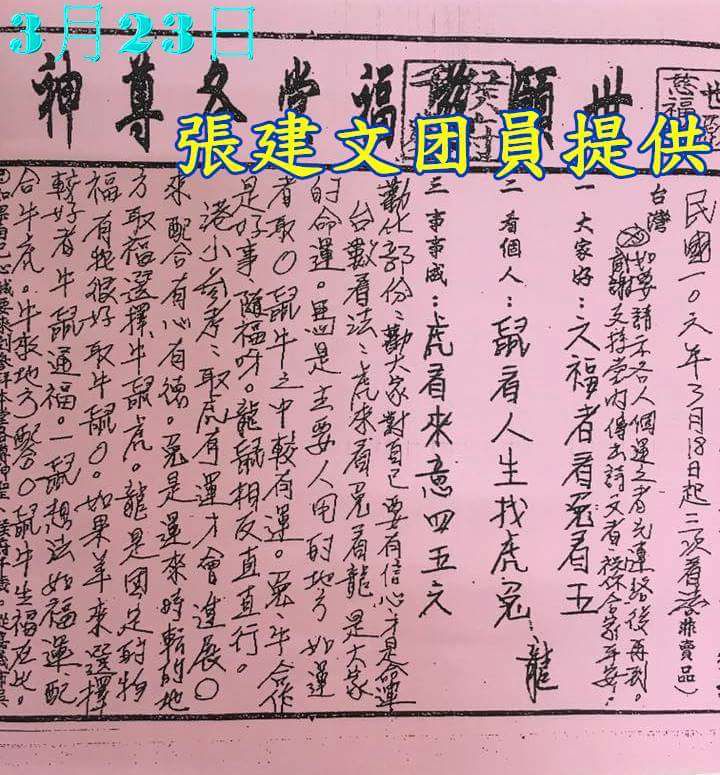 3月23日
世願慈福堂各尊神
張建文团員提供
民國一0六年3月18日起三次看堂(非賣品)
台灣
一大家好:六福者看兎看五
二看個人:鼠看人生找虎兎:龍
三事事成:虎看來意四五六
勸化部份:勸大家對自己要有信心才是命運
台數看法:虎來看兎看龍是大家
的命運。馬是主要人用的地方如運
者取0鼠牛之中較有運。兎牛合作
是好事隨福呀。龍鼠相反直直行。
港小參考:取虎有運才會進展0
來配合有心有德。兎是運來時轉的地
方取福選擇牛鼠虎。龍是固定的物
福有我很好取牛鼠0。如果羊來選擇
較好者牛鼠運福。一鼠想法如福運配
合牛虎。牛來地方配合0鼠牛生福在此。